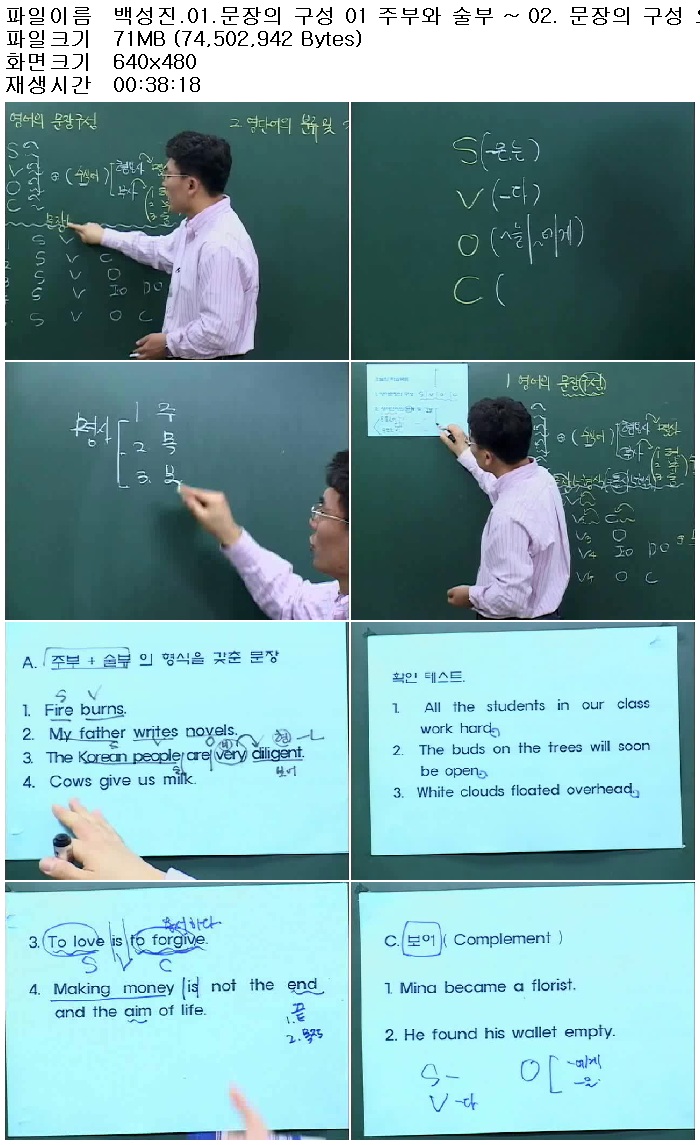 파일이름 백성진.01.문장의 구성 01 주부와 술부 ~ 02. 문장의 구성
파일크기 71MB (74,502,942 Bytes)
화면크기 640x480
재생시간 00:38:18
영어의 문장구성
2 영단어의 분류 및
S
V
O
C
⊕ (수식어)
부사
S V
S V C
S V O
S V IO DO
S V O C
S (-은는)
V (-다)
O (~을/~에게)
C (
명사
1 주
2. 목
3. 보
1 영어의 문장(구성)
⊕ (수식어)
부사
C
V3 O
V4 IO DO
O C
A. 주부 + 술부 의 형식을 갖춘 문장
S V
1. Fire burns.
2. My father writes novels.
3. The Korean people are very diligent.
보어
4. Cows give us milk.
확인 테스트.
1. All the students in our class
work hard.
2. The buds on the trees will soon
be open.
3. White clouds floated overhead.
용서하다
3. To love is to forgive.
S V C
4. Making money is not the end
and the aim of life.
1. 끝
2. 목적
C. 보어 ( Complement )
1. Mina became a florist.
2. He found his wallet empty.
S -
V -다
O -에게
-을